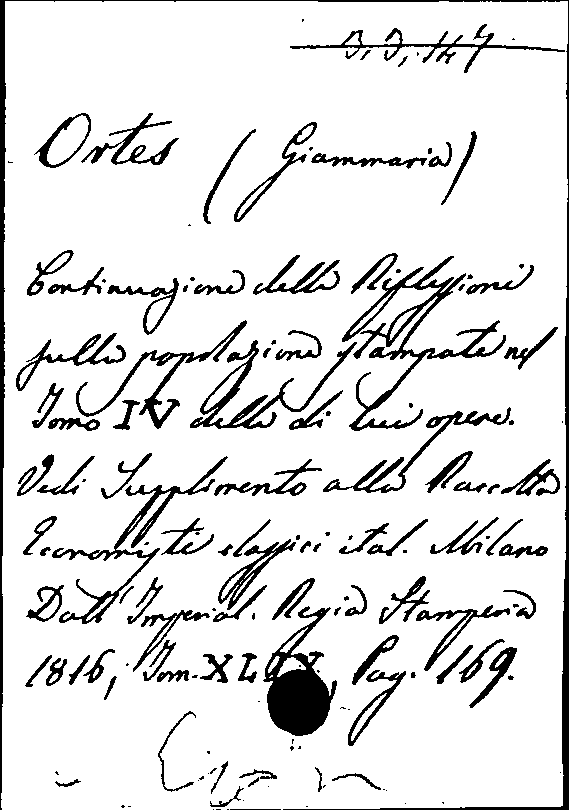 3,3,147
Ortes (Giammaria)
Continuazione delle Riflessioni
sulla popolazione stampate nel
Tomo IV delle di lui opere.
Vedi Supplimento alla Raccolta
Economisti classici ital. Milano
Dall' Imperial. Regia Stamperia
1816, Tom. XLIX, Pag. 169.